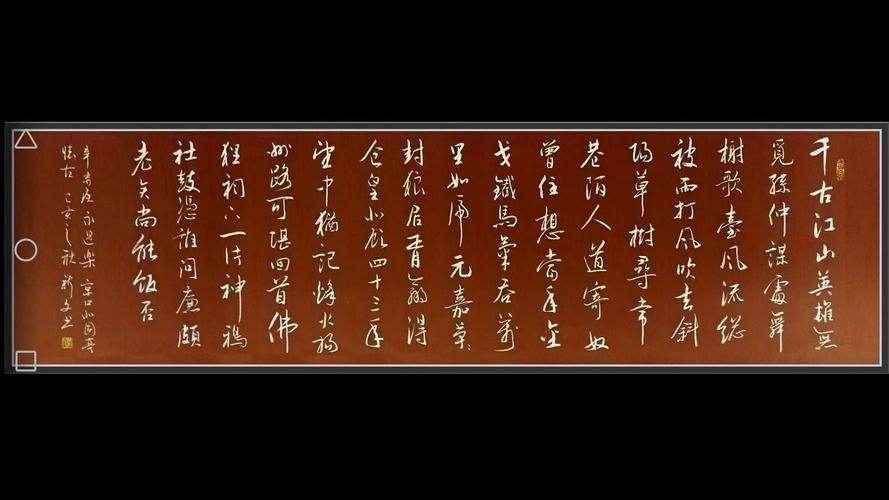 千古江山英雄無
覓孫仲謀處舞
榭歌臺風流總
被雨打風吹去斜
陽草樹尋常
巷陌人道寄奴
曾住想當年金
戈鐵馬氣吞萬
里如虎元嘉草〻
封狼居胥贏得
倉皇北顧四十三年
望中猶記烽火揚
州路可堪回首佛
狸祠下一片神鴉
社鼓憑誰問廉頗
老矣尚能飯否
辛棄疾永遇樂 京口北固亭
懷古 己亥之秋 文書